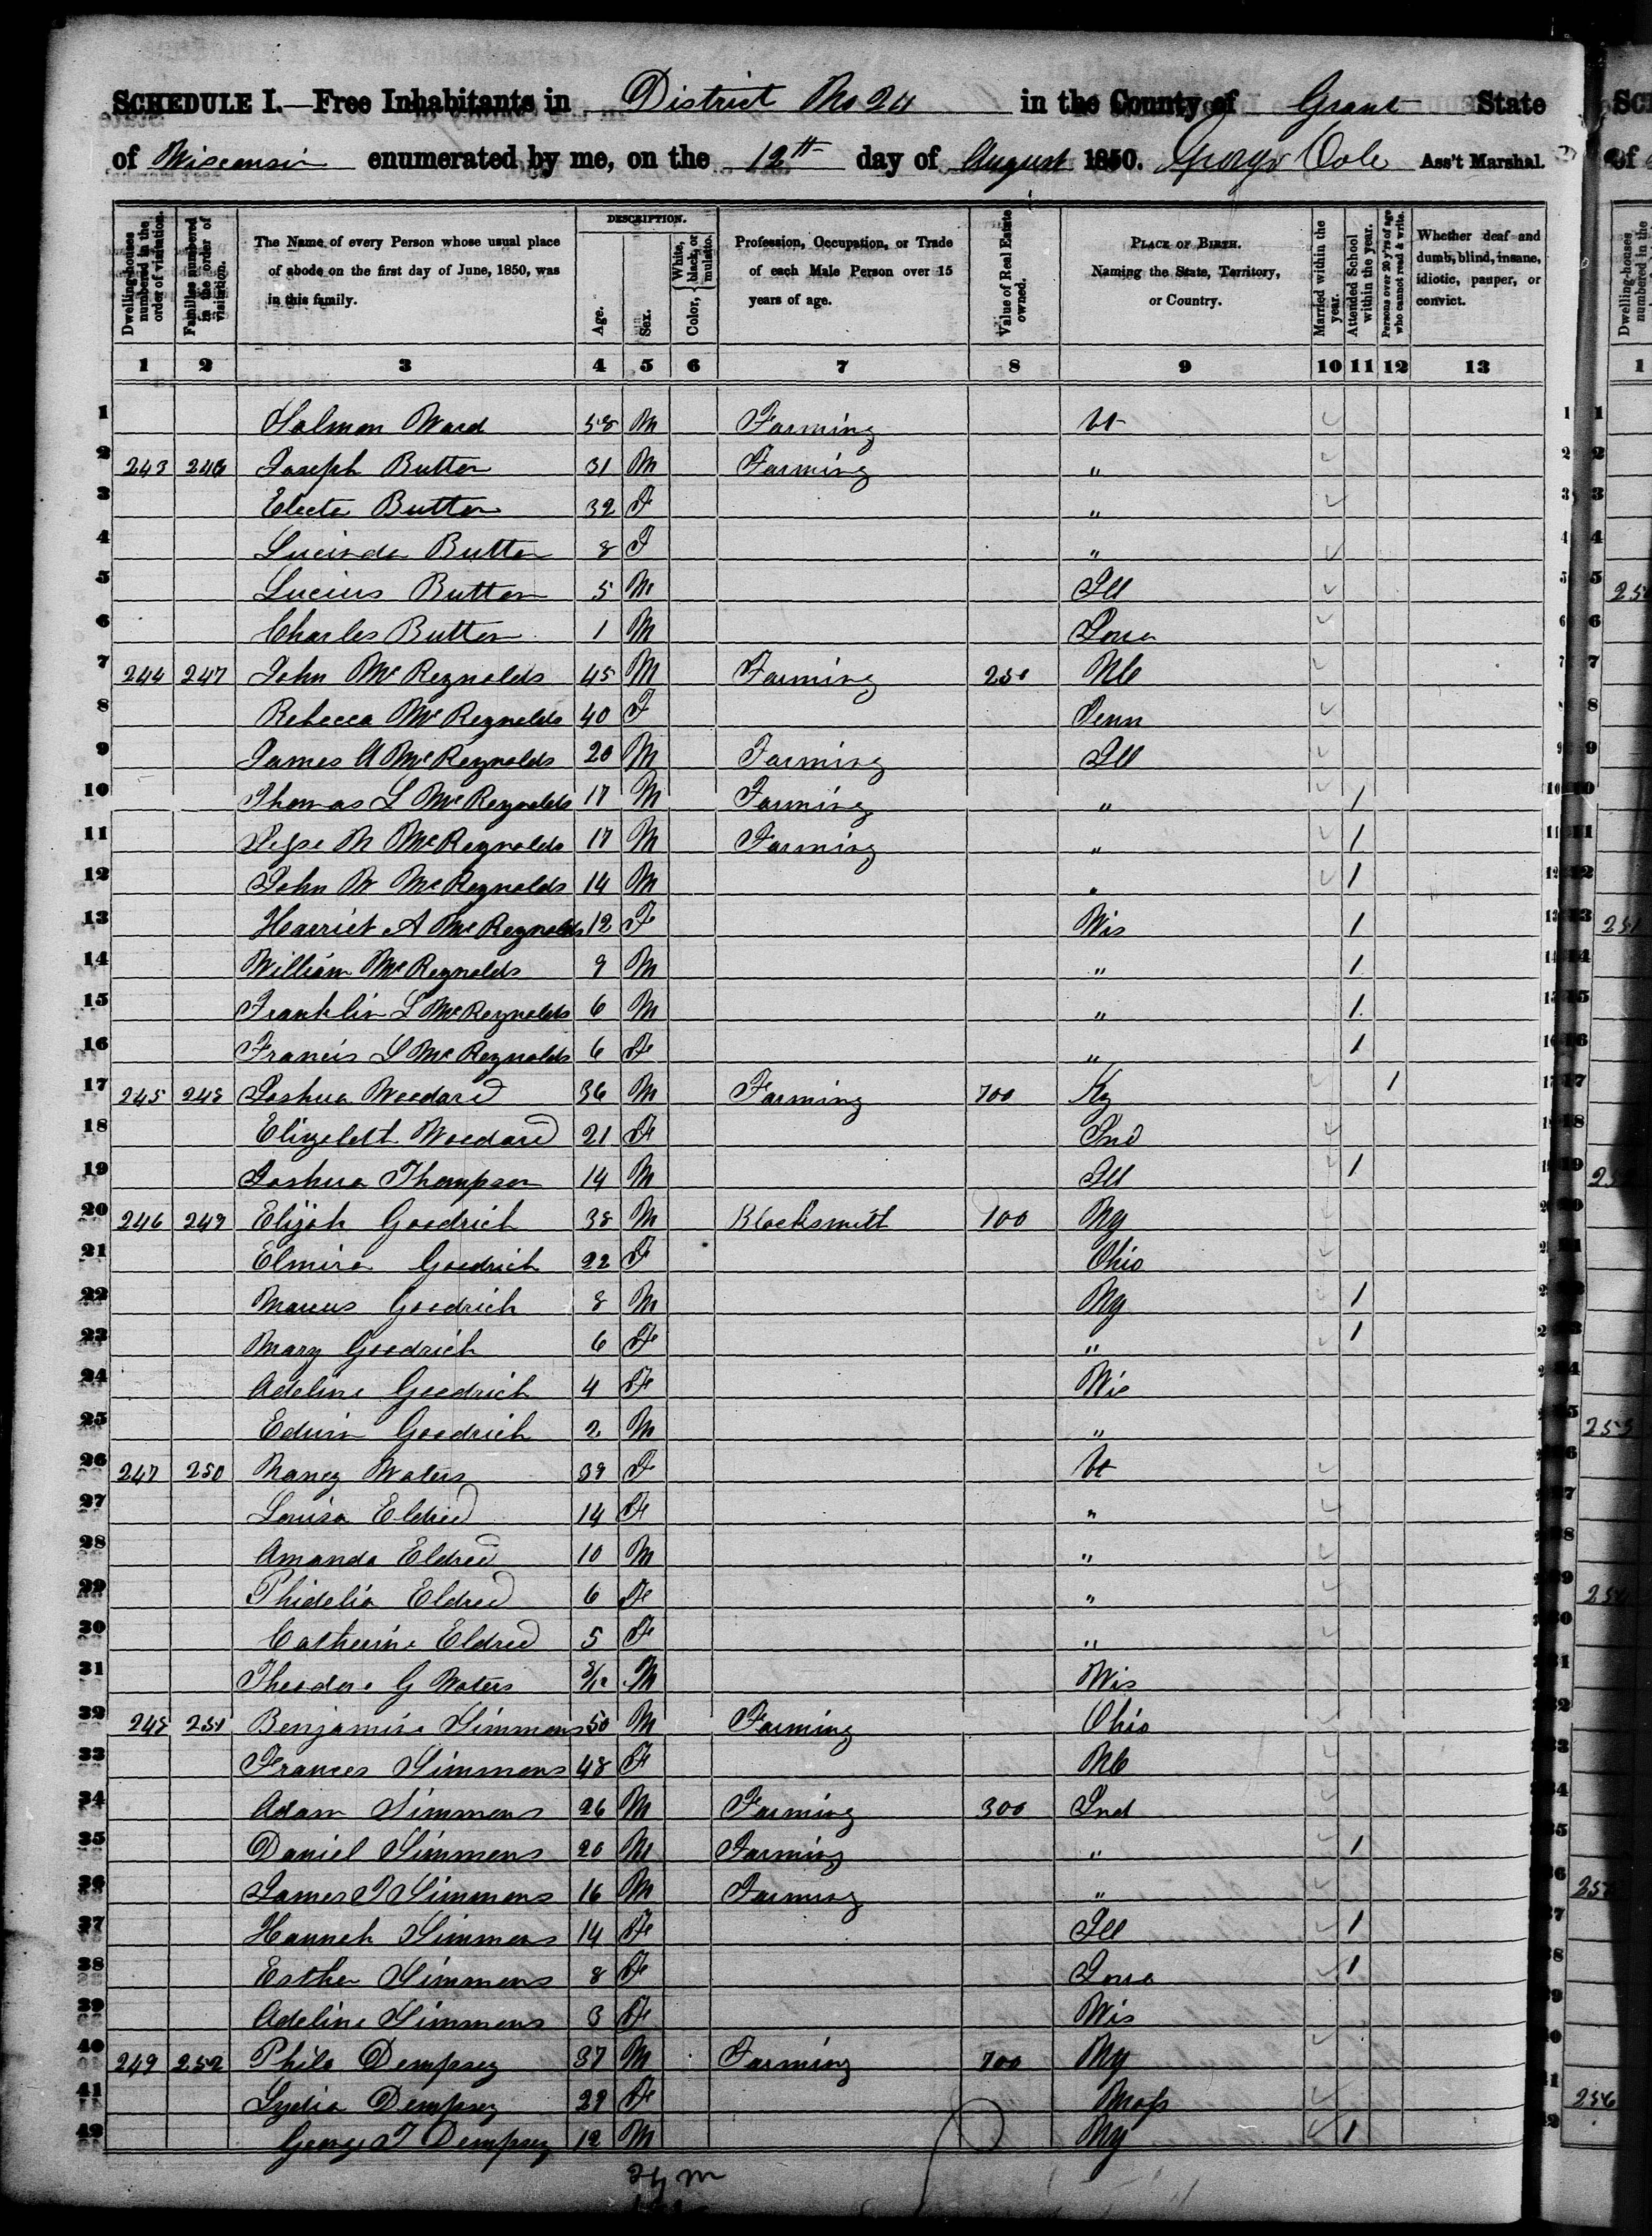 SCHEDULE I.—Free Inhabitants in District No 24 in the County of Grant State
of Wisconsin enumerated by me, on the 12th day of August 1850. George Cole Ass't Marshal.
Dwelling-houses numbered in the order of visitation.
Families numbered in the order of visitation.
The Name of every Person whose usual place of abode on the first day of June, 1850, was in this family.
DESCRIPTION.
Age.
Sex.
Color, { White, black, or mulatto.
Profession, Occupation, or Trade of each Male Person over 15 years of age.
Value of Real Estate owned.
PLACE OF BIRTH. Naming the State, Territory, or Country.
Married within the year.
Attended School within the year.
Persons over 20 y'rs of age who cannot read & write.
Whether deaf and dumb, blind, insane, idiotic, pauper, or convict.
1 2 3 4 5 6 7 8 9 10 11 12 13
1 Salmon Ward 58 M Farming Vt
2 243 246 Joseph Button 31 M Farming "
3 Electa Button 32 F "
4 Lucinda Button 8 F "
5 Lucius Button 5 M Ill
6 Charles Button 1 M Iowa
7 244 247 John McReynolds 45 M Farming 250 NC
8 Rebecca McReynolds 40 F Tenn
9 James A McReynolds 20 M Farming Ill
10 Thomas L McReynolds 17 M Farming " 1
11 M McReynolds 17 M Farming " 1
12 John W McReynolds 14 M " 1
13 Harriet A McReynolds 12 F Wis 1
14 William McReynolds 9 M " 1
15 Franklin L McReynolds 6 M " 1
16 Francis L McReynolds 6 F " 1
17 245 248 Joshua Woodard 36 M Farming 700 Ky 1
18 Elizebeth Woodard 21 F Ind
19 Joshua Thompson 14 M Ill 1
20 246 249 Elijah Goodrich 38 M Blacksmith 100 Ny
21 Elmira Goodrich 22 F Ohio
22 Marcus Goodrich 8 M Ny 1
23 Mary Goodrich 6 F " 1
24 Adeline Goodrich 4 F Wis
25 Edwin Goodrich 2 M "
26 247 250 Nancy Waters 39 F Vt
27 Louisa Eldred 14 F "
28 Amanda Eldred 10 M "
29 Phidelia Eldred 6 F "
30 Catherine Eldred 5 F "
31 Theodore G Waters 8/12 M Wis
32 248 251 Benjamin Simmons 50 M Farming Ohio
33 Frances Simmons 48 F NC
34 Adam Simmons 26 M Farming 300 Ind
35 Daniel Simmons 20 M Farming " 1
36 James T Simmons 16 M Farming "
37 Hannah Simmons 14 F Ill 1
38 Esther Simmons 8 F Iowa 1
39 Adeline Simmons 3 F Wis
40 249 252 Philo Dempsey 37 M Farming 700 Ny
41 Lydia Dempsey 29 F Mass
42 George T Dempsey 12 M Ny 1